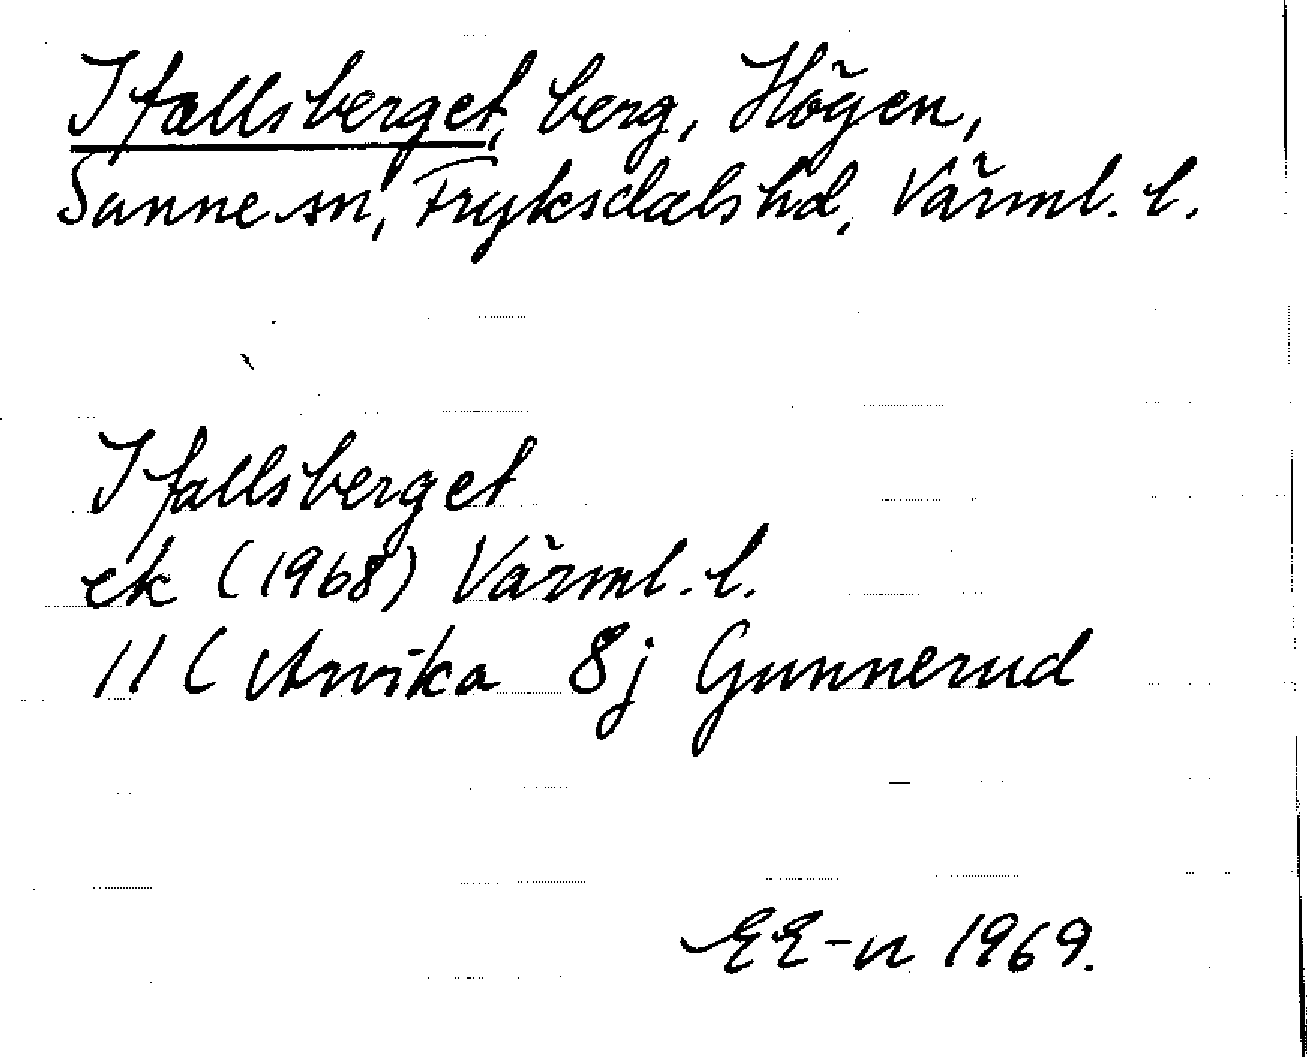 Ifallsberget, berg, Högen,
Sunne sn, Fryksdals hd, Värml. l.
Ifallsberget
ek (1968) Värml. l.
11C Arvika 8j Gunnerud
EE-n 1969.